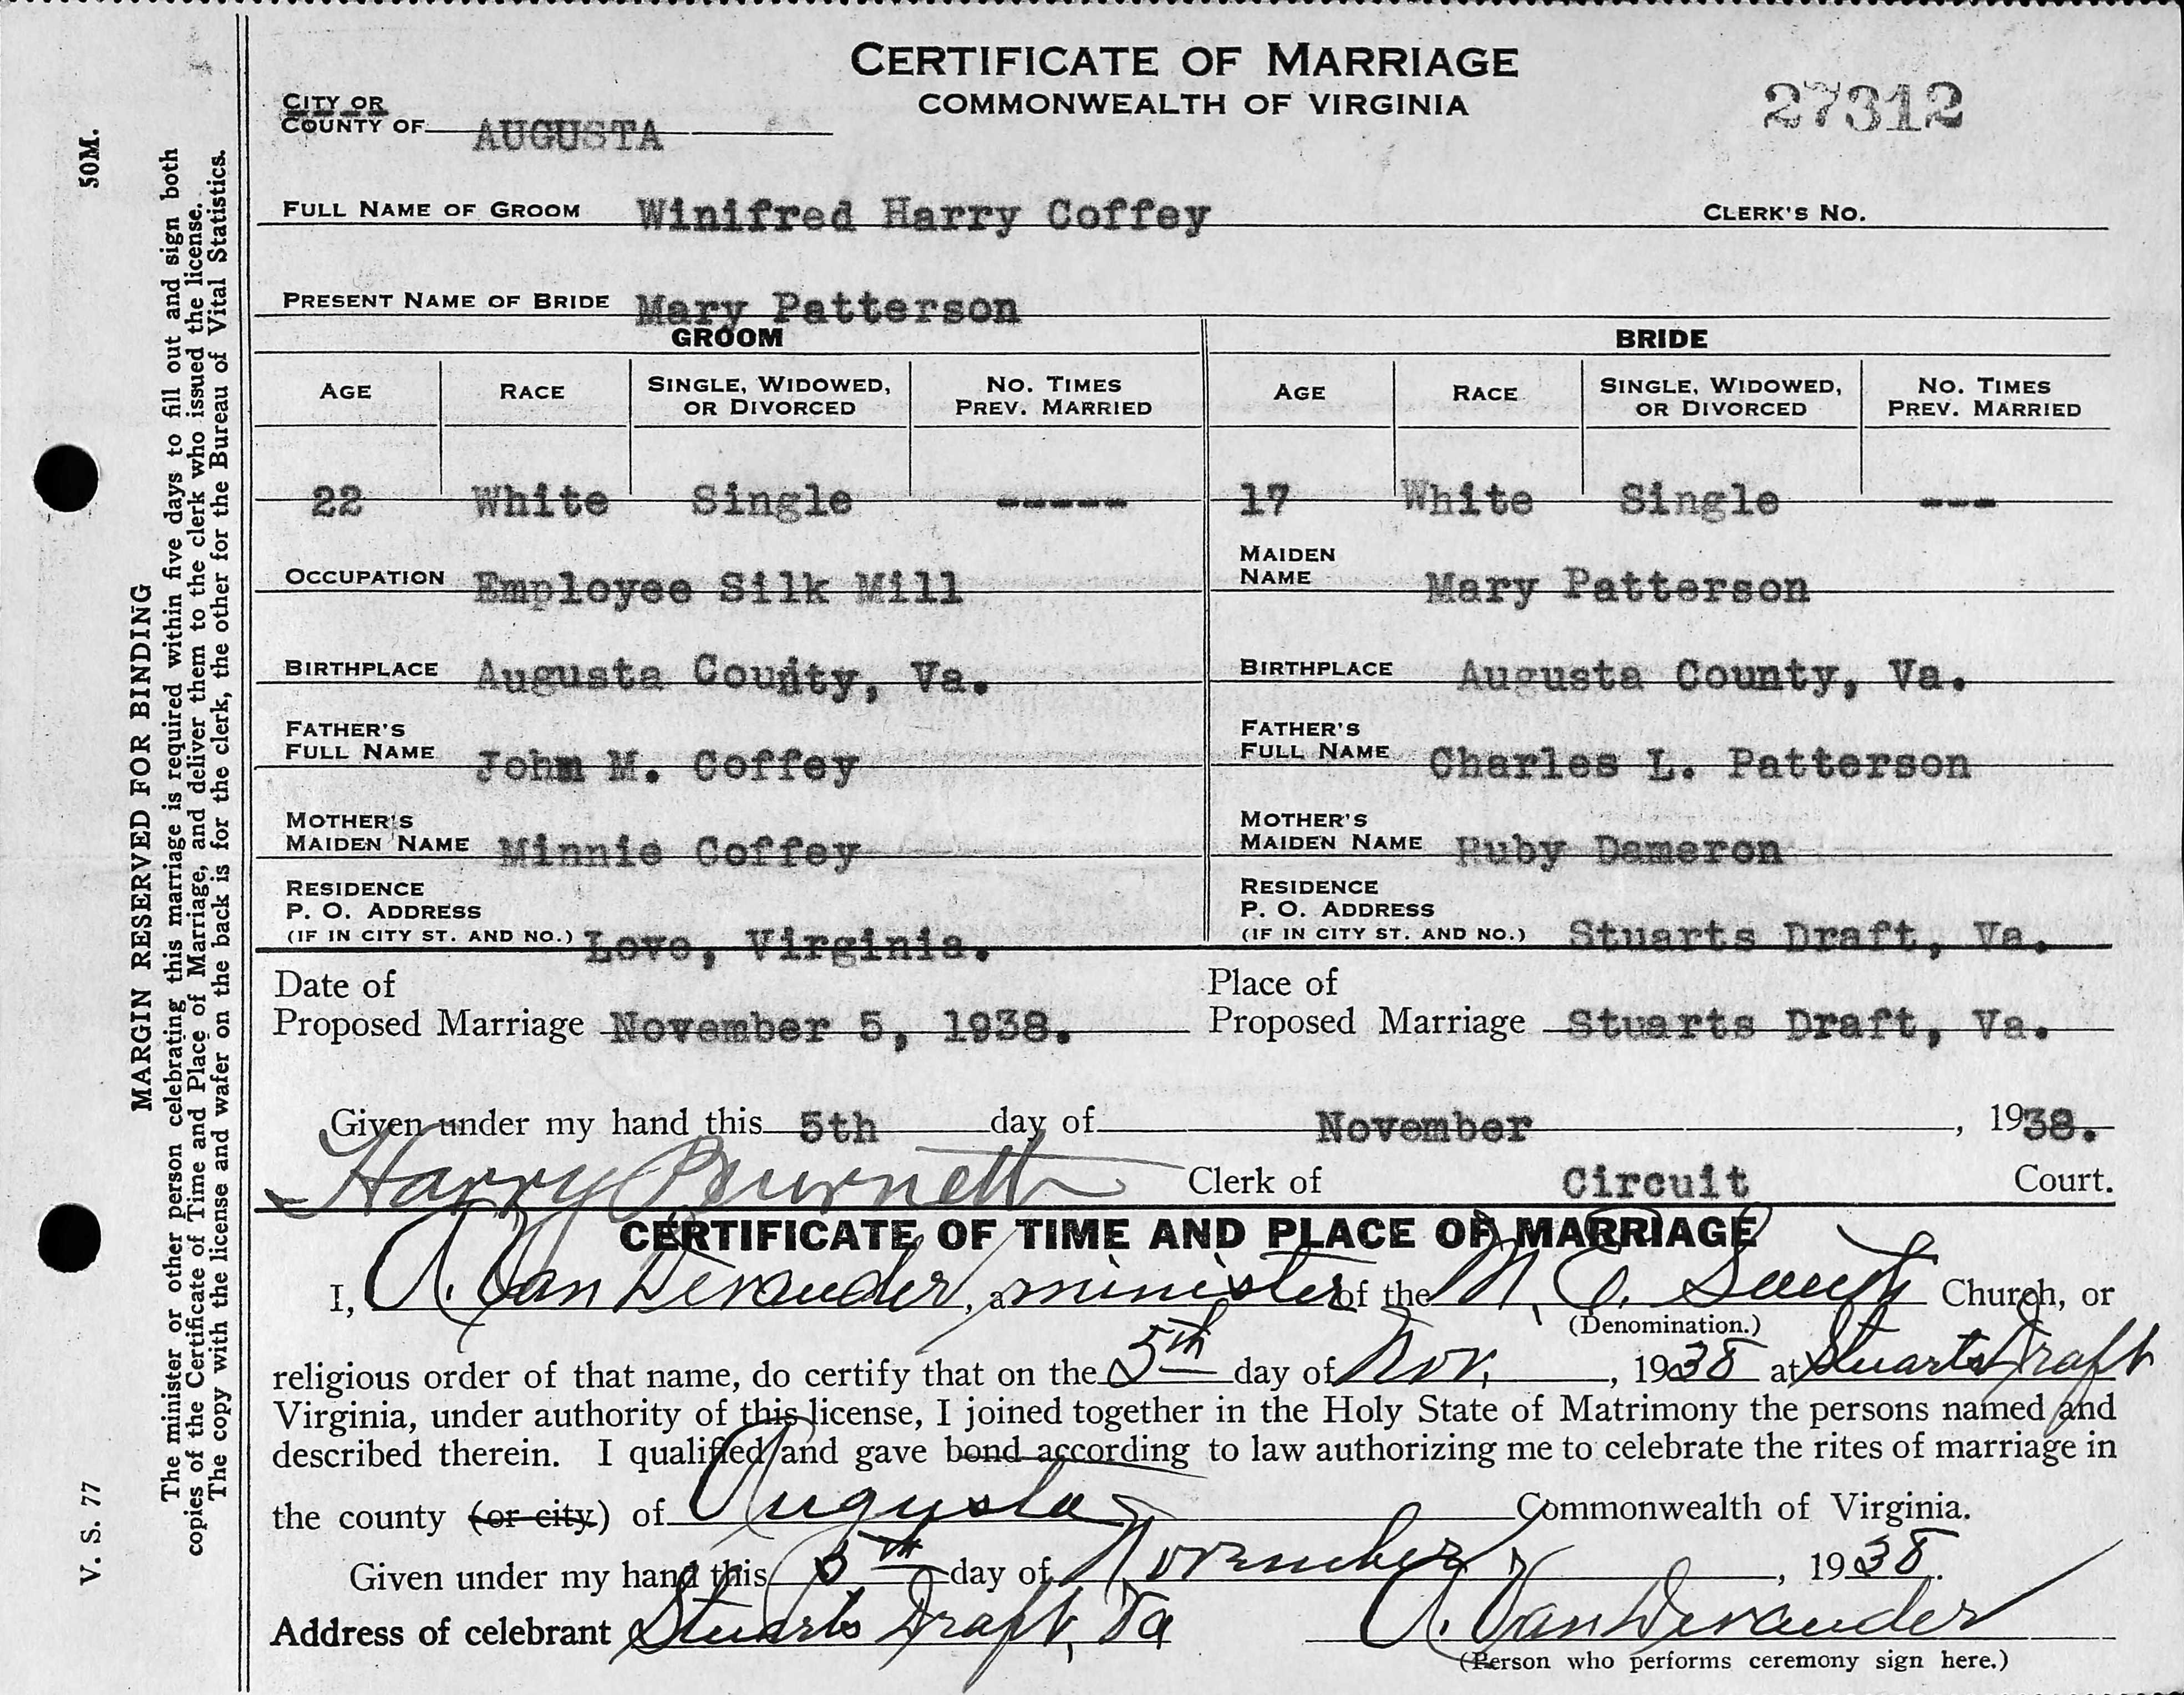 CERTIFICATE OF MARRIAGE
COMMONWEALTH OF VIRGINIA
27312
CITY OR
COUNTY OF AUGUSTA
FULL NAME OF GROOM Winifred Harry Coffey CLERK'S NO.
PRESENT NAME OF BRIDE Mary Patterson
GROOM BRIDE
AGE RACE SINGLE, WIDOWED, OR DIVORCED NO. TIMES PREV. MARRIED AGE RACE SINGLE, WIDOWED, OR DIVORCED NO. TIMES PREV. MARRIED
22 White Single ----- 17 White Single ---
OCCUPATION Employee Silk Mill MAIDEN NAME Mary Patterson
BIRTHPLACE Augusta County, Va. BIRTHPLACE Augusta County, Va.
FATHER'S FULL NAME John M. Coffey FATHER'S FULL NAME Charles L. Patterson
MOTHER'S MAIDEN NAME Minnie Coffey MOTHER'S MAIDEN NAME Ruby Dameron
RESIDENCE P. O. ADDRESS (IF IN CITY ST. AND NO.) Love, Virginia. RESIDENCE P. O. ADDRESS (IF IN CITY ST. AND NO.) Stuarts Draft, Va.
Date of Proposed Marriage November 5, 1938. Place of Proposed Marriage Stuarts Draft, Va.
Given under my hand this 5th day of November, 1938.
Harry Burnett Clerk of Circuit Court.
CERTIFICATE OF TIME AND PLACE OF MARRIAGE
I, A. VanDevander, a minister of the M. E. South Church, or
(Denomination.)
religious order of that name, do certify that on the 5th day of Nov., 1938 at Stuarts Draft
Virginia, under authority of this license, I joined together in the Holy State of Matrimony the persons named and
described therein. I qualified and gave bond according to law authorizing me to celebrate the rites of marriage in
the county (or city) of Augusta Commonwealth of Virginia.
Given under my hand this 5th day of November, 1938.
Address of celebrant Stuarts Draft, Va A. VanDevander
(Person who performs ceremony sign here.)
50M.
MARGIN RESERVED FOR BINDING
The minister or other person celebrating this marriage is required within five days to fill out and sign both
copies of the Certificate of Time and Place of Marriage, and deliver them to the clerk who issued the license.
The copy with the license and wafer on the back is for the clerk, the other for the Bureau of Vital Statistics.
V. S. 77